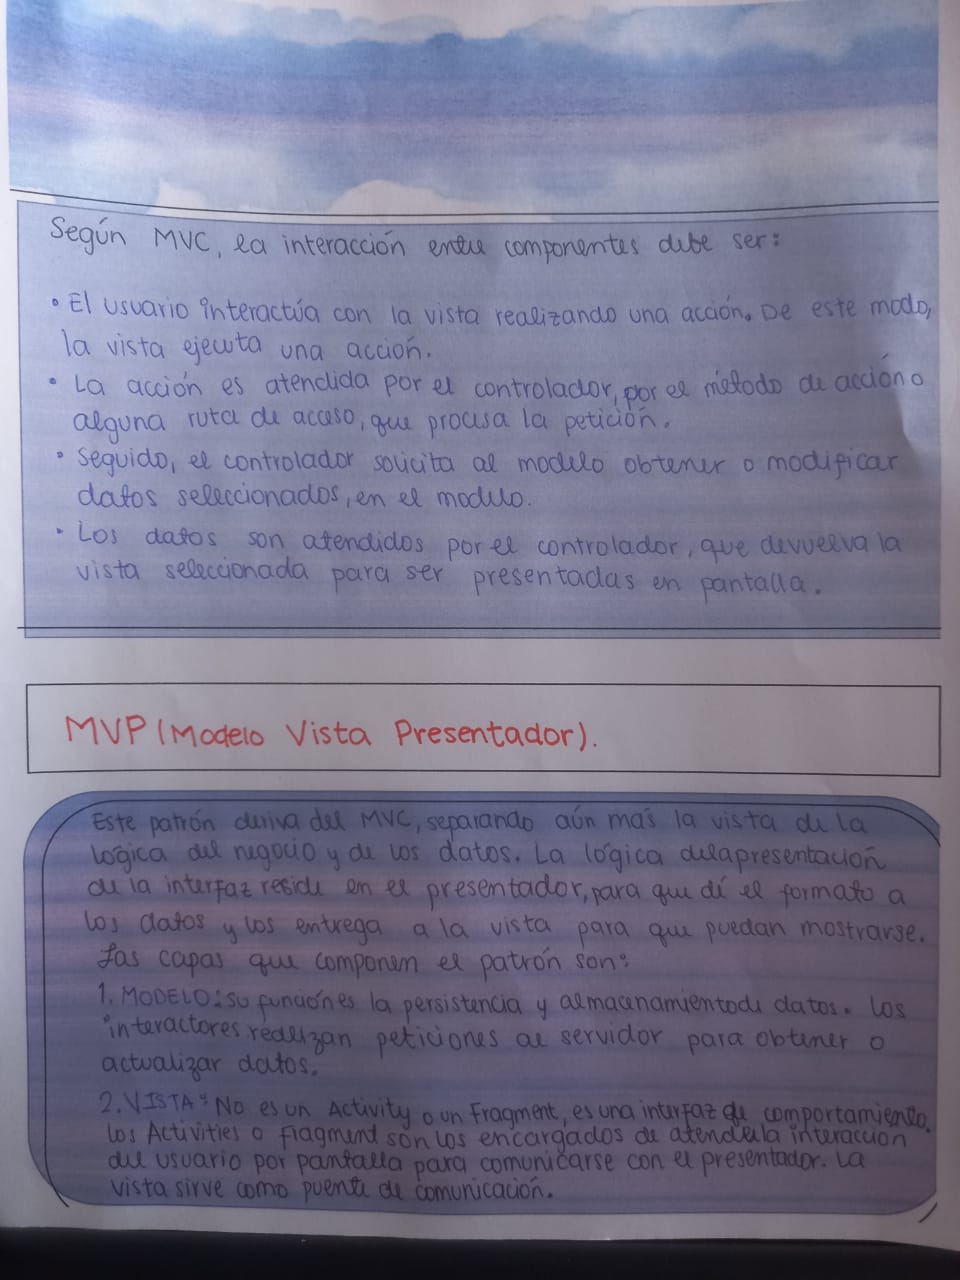 Según MVC, la interacción entre componentes debe ser:
• El usuario interactúa con la vista realizando una acción. De este modo,
la vista ejecuta una acción.
• La acción es atendida por el controlador, por el método de acción o
alguna ruta de acceso, que procesa la petición.
• Seguido, el controlador solicita al modelo obtener o modificar
datos seleccionados, en el modelo.
• Los datos son atendidos por el controlador, que devuelva la
vista seleccionada para ser presentadas en pantalla.
MVP (Modelo Vista Presentador).
Este patrón deriva del MVC, separando aún más la vista de la
lógica del negocio y de los datos. La lógica de la presentación
de la interfaz reside en el presentador, para que dé el formato a
los datos y los entrega a la vista para que puedan mostrarse.
Las capas que componen el patrón son:
1. MODELO: su función es la persistencia y almacenamiento de datos. Los
interactores realizan peticiones al servidor para obtener o
actualizar datos.
2. VISTA: No es un Activity o un Fragment, es una interfaz de comportamiento.
los Activities o fragment son los encargados de atender la interacción
del usuario por pantalla para comunicarse con el presentador. La
vista sirve como puente de comunicación.